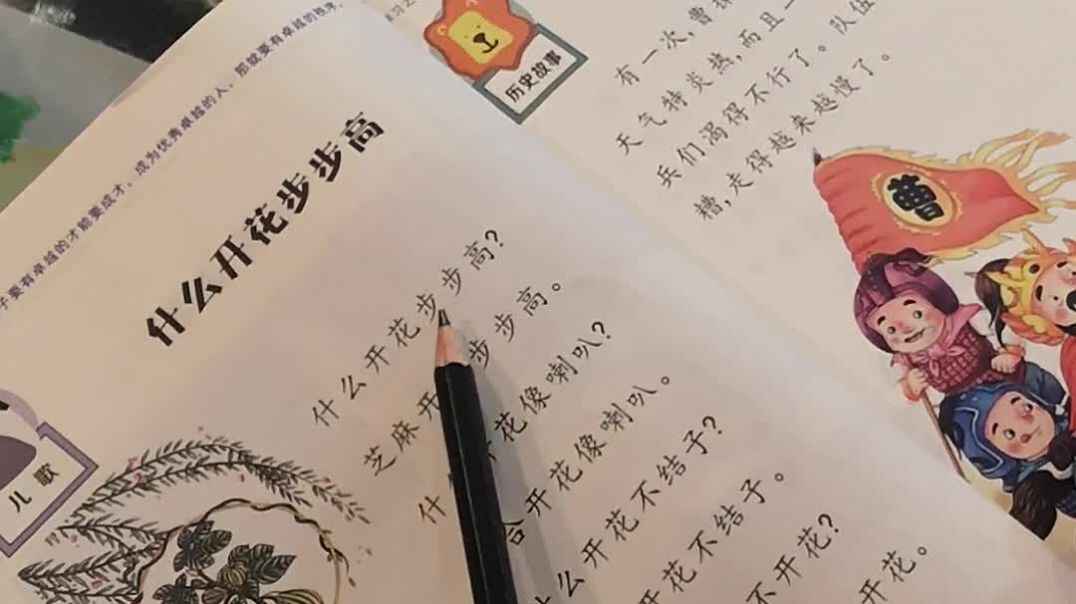 要有卓越的才能要成才,成为优秀卓越的人,那就要有卓越的
什么开花步步高
什么开花步步高?
芝麻开 步步高。
什 花像喇叭?
合开花像喇叭。
什么开花不结子?
开花不结子。
不开花?
开花。
儿歌
历史故事
有一次,曹
天气特炎热,而且一
兵们渴得不行了。队伍
糟,走得越来越慢了。
曹